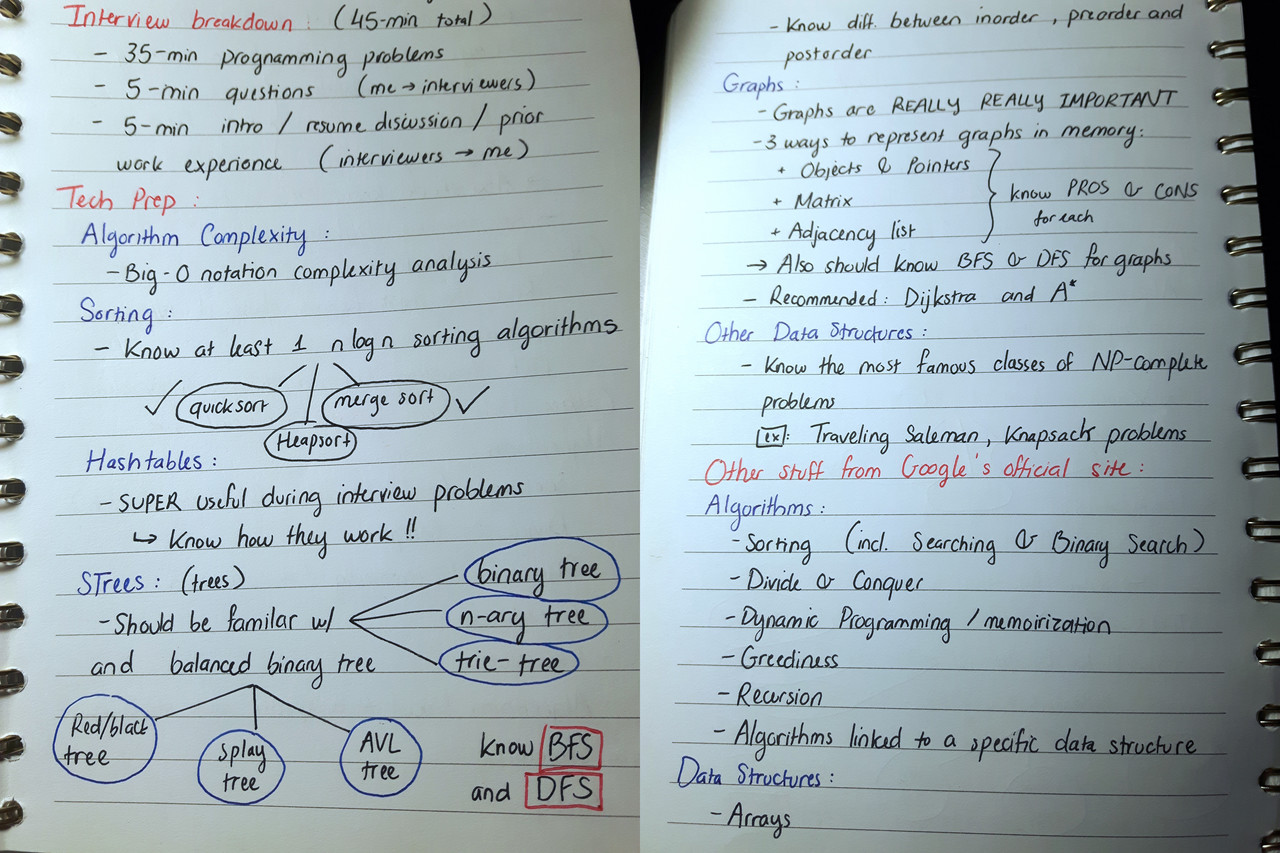 Interview breakdown : (45-min total)
- 35-min programming problems
- 5-min questions (me → interviewers)
- 5-min intro / resume discussion / prior
work experience (interviewers → me)
Tech Prep :
Algorithm Complexity :
- Big-O notation complexity analysis
Sorting :
- Know at least 1 n log n sorting algorithms
✓ quicksort merge sort ✓
Heapsort
Hashtables :
- SUPER useful during interview problems
↳ Know how they work !!
STrees : (trees)
binary tree
- Should be familar w/ n-ary tree
and balanced binary tree trie-tree
Red/black
tree
splay
tree
AVL
tree
know BFS
and DFS
- Know diff. between inorder, preorder and
postorder
Graphs :
- Graphs are REALLY REALLY IMPORTANT
- 3 ways to represent graphs in memory:
+ Objects & Pointers
+ Matrix
+ Adjacency list
know PROS & CONS
for each
→ Also should know BFS & DFS for graphs
- Recommended: Dijkstra and A*
Other Data Structures :
- Know the most famous classes of NP-complete
problems
ex: Traveling Saleman, Knapsack problems
Other stuff from Google's official site :
Algorithms :
- Sorting (incl. Searching & Binary Search)
- Divide & Conquer
- Dynamic Programming / memoirization
- Greediness
- Recursion
- Algorithms linked to a specific data structure
Data Structures :
- Arrays